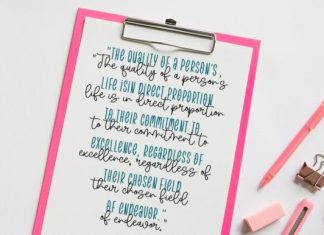 "THE QUALITY OF A PERSON'S,
"The quality of a person's
LIFE ISIN DIRECT PROPORTION
life is in direct proportion
TO THEIR COMMITMENT TO
to their commitment to
EXCELLENCE, REGARDLESS OF
excellence, regardless of
THEIR CHOSEN FIELD
their chosen field
OF ENDEAVOR."
of endeavor."